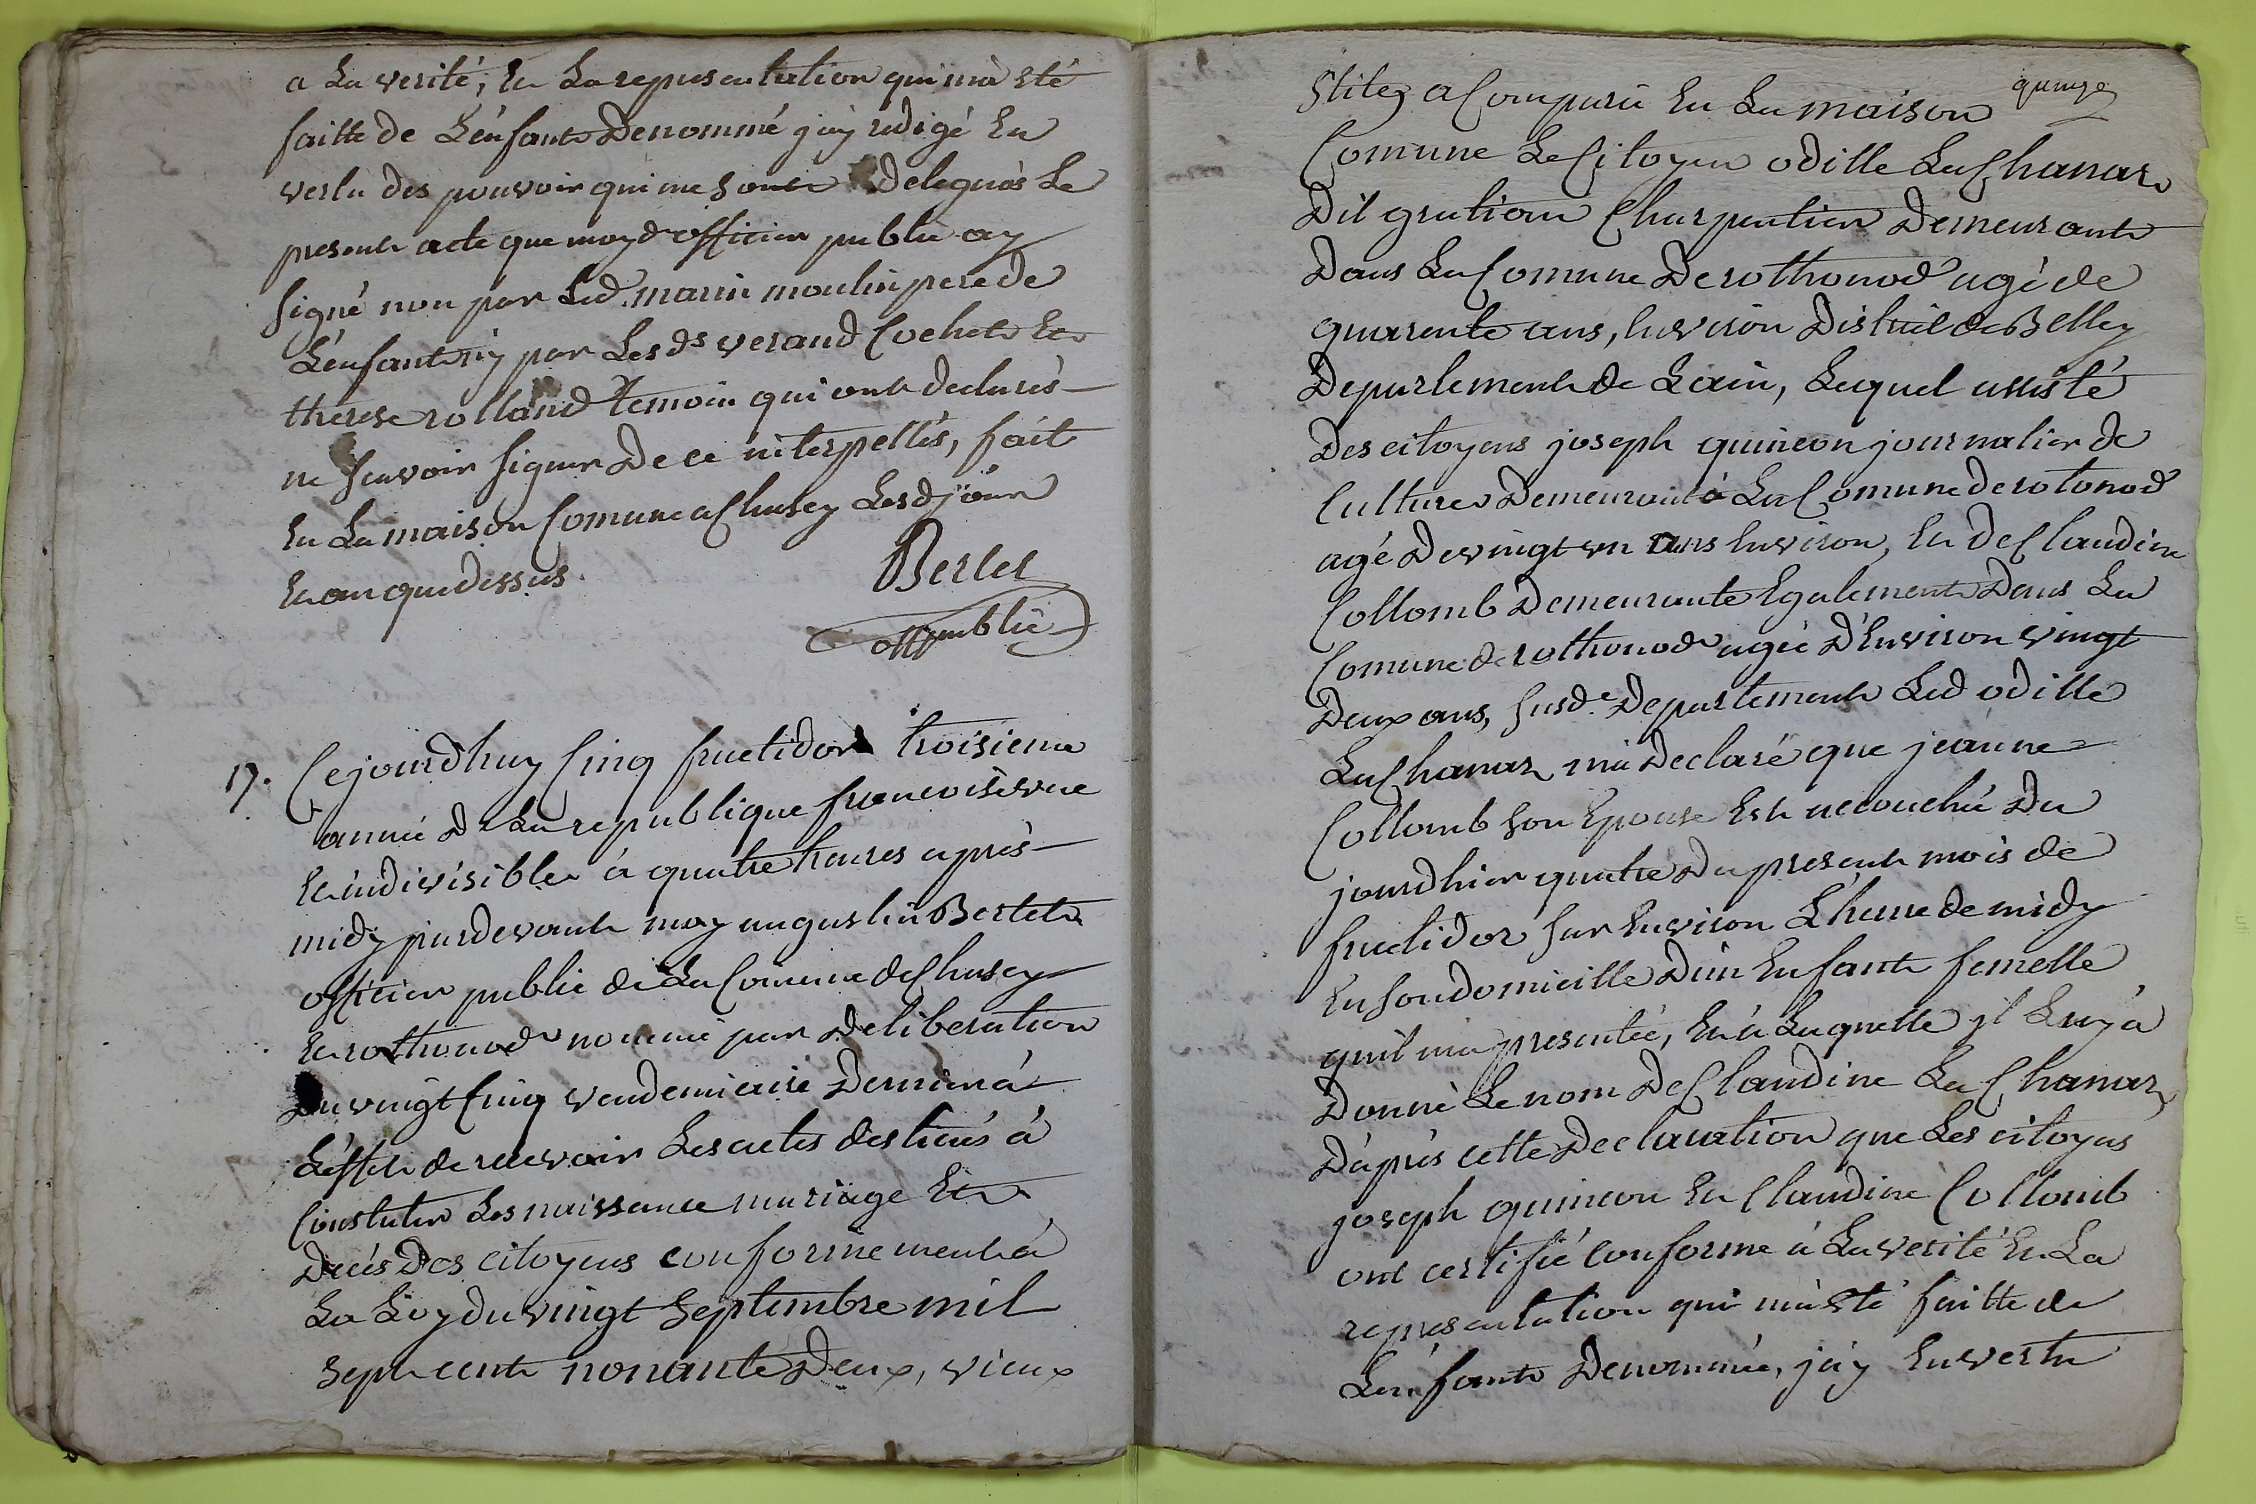 a La verité, Et La representation qui ma Eté
faitte de L'énfant Denommé j'ay redigé En
vertu des pouvoir qui me sont delegués Le
present acte que moyd officier public ay
signé non par Led. marin moulin pere de
L'énfant ny par Les ds verand Cochet Et
therese rolland temoin qui ont declarés
ne scavoir signer De ce interpellés, fait
En La maison Comune a Chasey Lesd jour
Et an que dessus.
Bertet
off public
17. Cejourdhuy Cinq fructidor troisieme
année De La republique francoise une
Et indivisible à quatre heures après
midy pardevant moy augustin Bertet
officier public de La Comune de Chasey
Et rothonod nommé par Deliberation
Du vingt Cinq vendemiaire Dernier à
L'éffet de recevoir Les actes destinés à
Constater Les naissance mariage Et
Decés Des citoyens conformement à
La Loy du vingt Septembre mil
Sept cent nonante Deux, vieux
quinze
Stile, a Comparu En La maison
Comune Le Citoyen odille La Chanar
Dit gratian Charpentier Demeurant
Dans La Comune De rothonod agé de
quarente ans, Environ District de Belley
Departement de L'ain, Lequel assisté
Des citoyens joseph quincon journalier de
Culture Demeurant à La Comune de rotonod
agé De vingt un ans Environ, Et De Claudine
Collomb Demeurante Egalement Dans La
Comune de rothonod agée D'Environ vingt
Deux ans, susd. Departement Led odille
La Chanar ma Declaré que jeanne
Collomb son Epouse Est accouchée Du
jourdhier quatre Du present mois de
fructidor sur Environ L'heure de midy
En son domicille D'un Enfant femelle
quil ma presentée, Et à Laquelle jl Luy a
Donné Le nom De Claudine La Chanar,
D'aprés cette Declaration que Les citoyens
joseph quincon Et Claudine Collomb
ont certifié Conforme à La verité Et La
representation qui ma Eté faitte de
L'énfant Denommée, j'ay En vertu